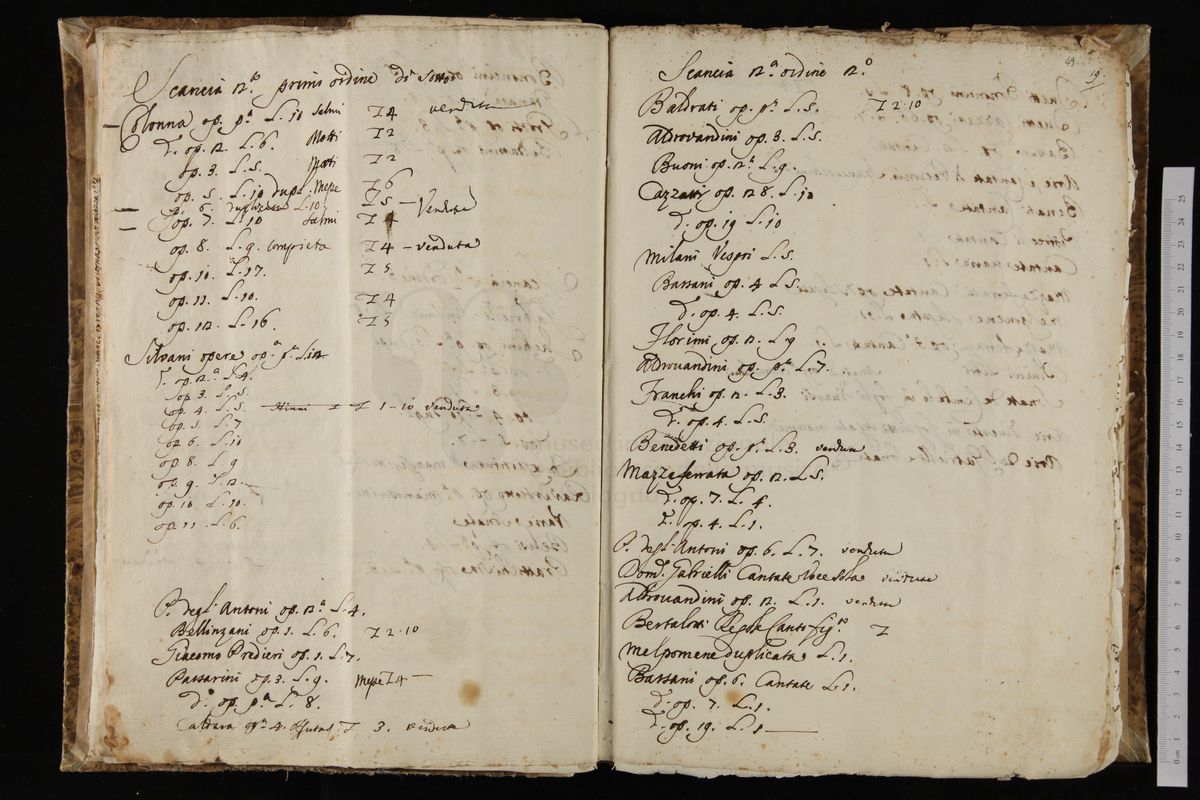 Scancia 2.da primi ordine di Sotto
Colonna op. p.a L. 10 Salmi Z 4 venduta
D. op. 2. L. 6. Motti Z 2
op. 3. L. 5. Motti Z 2
op. 5. L. 10 dupl. Messe Z 6
op. 6. duplicata L. 10 Z 5 – Venduta
op. 7. L. 10 Salmi Z 4
op. 8. L. 9. Compieta Z 4 – venduta
op. 10. L. 17. Z 5
op. 11. L. 10. Z 4
op. 12. L. 16. Z 5
Silvani opere op.a p.a L. 12
D. op. 2.a L. 4.
op. 3. L. 5.
op. 4. L. 5. Hinni Z 1–10 venduta
op. 5. L. 7
op. 6. L. 10
op. 8. L. 9
op. 9. L. 12.
op. 10. L. 10.
op. 11. L. 6.
P. degl' Antoni op. 2.a L. 4.
Bellinzani op. 1. L. 6. Z 2.10
Giacomo Predieri op. 1. L. 7.
Passarini op. 3. L. 9. Messe Z 4 –
D.o op. p.a L. 8.
Caldara op. 4. Z 3. venduta
49.
19.
Scancia 2.a ordine 2.o
Baldrati op. p.a L. 5. Z 2.10
Aldrovandini op. 3. L. 5.
Buoni op. 2.a L. 9.
Cazzatti op. 28. L. 10
D. op. 19 L. 10
Milani Vespri L. 5.
Bassani op. 4 L. 5.
D. op. 4. L. 5.
Florimi op. 2. L. 9
Aldrovandini op. p.a L. 7.
Franchi op. 2. L. 3.
D. op. 4. L. 5.
Benedetti op. p.a L. 3. venduta
Mazzaferrata op. 2. L. 5.
D. op. 7. L. 4.
D. op. 4. L. 1.
P. degl' Antoni op. 6. L. 7. venduta
Dom. Gabrielli Cantate Voce Sola venduta
Aldrovandini op. 2. L. 1. venduta
Bertalotti Regole Canto fig.o Z
Melpomene duplicata L. 1.
Bassani op. 6. Cantate L. 1.
D. op. 7. L. 1.
D. op. 19. L. 1